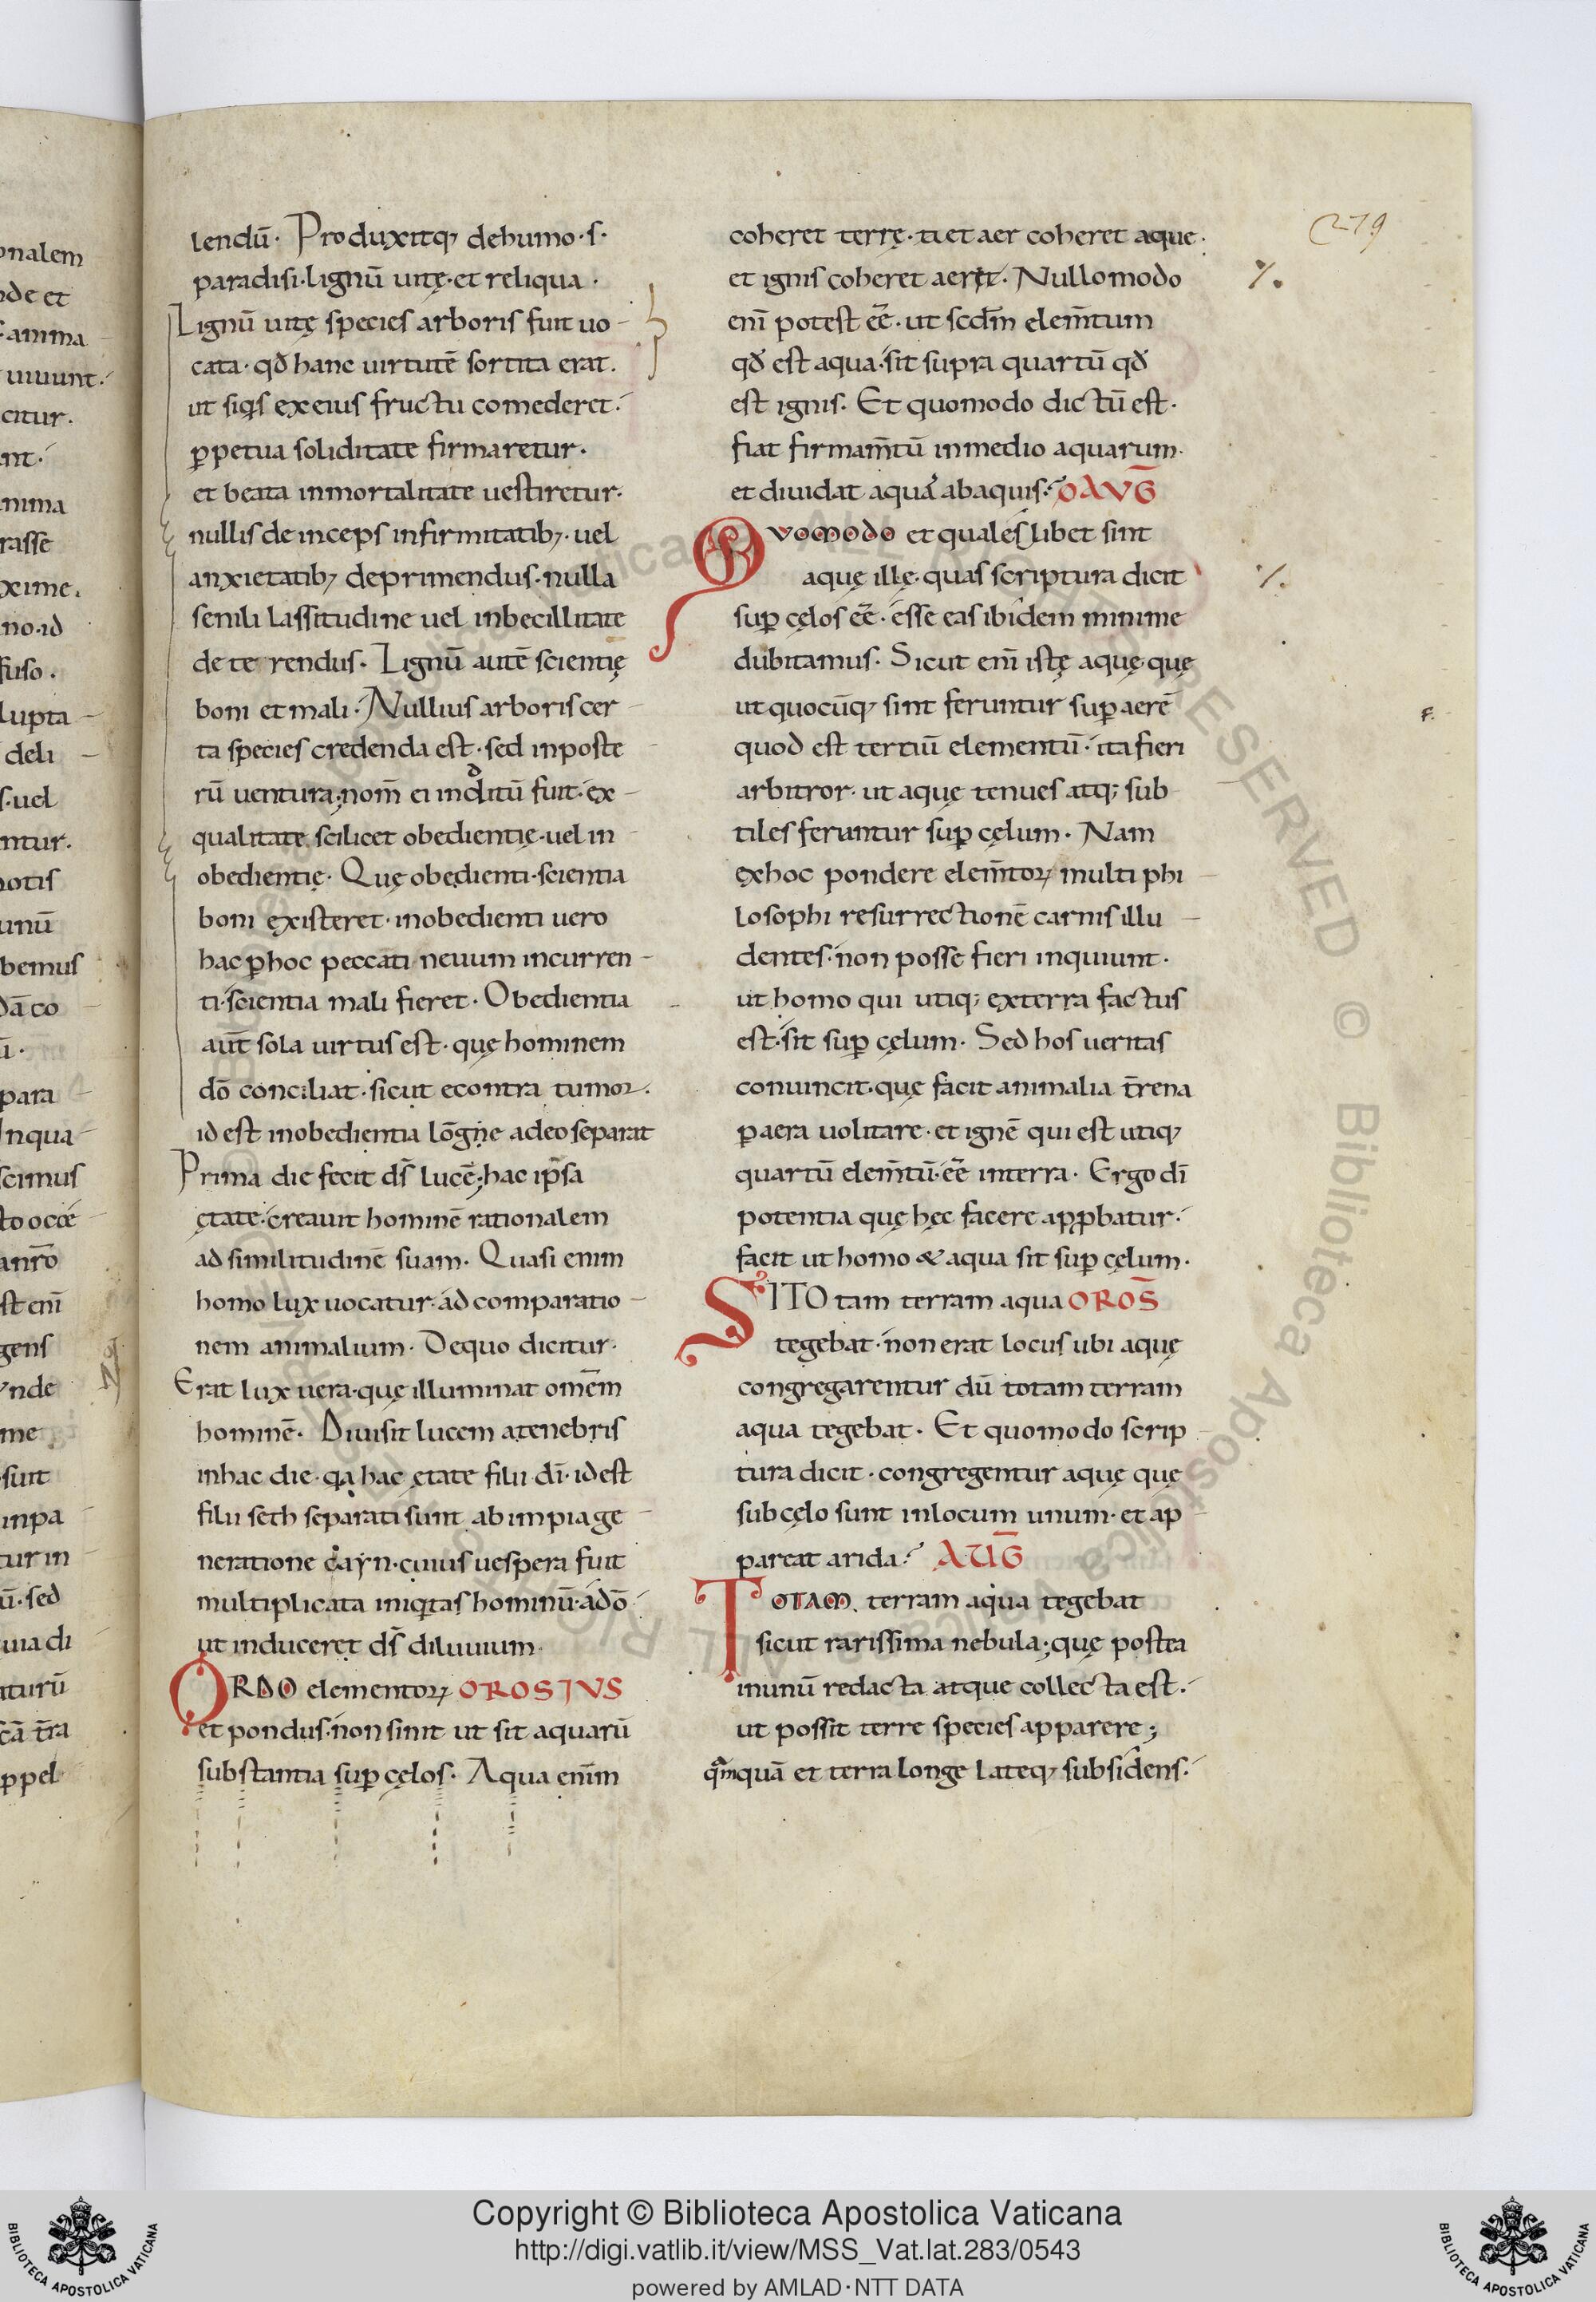 lendū. Produxitq; dehumo.s.
paradisi.lignū uitę.et reliqua.
Lignū uitę species arboris fuit uo-
cata.qđ hanc uirtutē sortita erat.
ut siqⁱs ex eius fructu comederet.
ꝑpetua soliditate firmaretur.
et beata inmortalitate uestiretur.
nullis deinceps infirmitatib;.uel
anxietatib; deprimendus.nulla
senili lassitudine uel inbecillitate
deterendus. Lignū autē scientię
boni et mali. Nullius arboris cer-
ta species credenda est.sed inposte-
rū uentura; nom̄ ei inditū fuit.ex-
qualitate scilicet obedientię.uel in-
obedientię. Quę obedienti.scientia
boni existeret.inobedienti uero
hac ꝑhoc peccati neuum incurren-
ti.scientia mali fieret. Obedientia
aūt sola uirtus est.quę hominem
dō conciliat.sicut econtra tumor.
id est inobedientia lōgne adeo separat
Prima die fecit ds̄ lucē; hac ip̄sa
ętate.creauit hominē rationalem
ad similitudinē suam. Quasi enim
homo lux uocatur.ad comparatio-
nem animalium. Dequo dicitur.
Erat lux uera.quę illuminat om̄em
hominē. Diuisit lucem atenebris
inhac die.qa hac ętate filii dī.id est
filii seth separati sunt ab impia ge-
neratione cayn.cuius uespera fuit
multiplicata iniqⁱtas hominū.adō
ut induceret ds̄ diluuium
ORDO elementoꝝ OROSIVS
et pondus.non sinit ut sit aquarū
substantia suꝑ cęlos. Aqua enīm
coheret terrę.ti et aer coheret aque.
et ignis coheret aeri. Nullomodo
enī potest eē.ut scdm̄ elem̄tum
qđ est aqua.sit supra quartū qđ
est ignis. Et quomodo dictū est.
fiat firmam̄tū inmedio aquarum.
et diuidat aquā abaquis. AVḠ
QVOMODO et quales libet sint
aquę illę.quas scriptura dicit
suꝑ cęlos eē.esse eas ibidem minime
dubitamus. Sicut enī istę aquę.quę
ut quocūq; sint feruntur suꝑ aerē
quod est tertiū elementū.ita fieri
arbitror.ut aquę tenues atq; sub-
tiles feruntur suꝑ cęlum. Nam
exhoc pondere elem̄toꝝ multi phi-
losophi resurrectionē carnis illu-
dentes.non posse fieri inquiunt.
ut homo qui utiq; exterra factus
est.sit suꝑ cęlum. Sed hos ueritas
conuincit.quę facit animalia t̄rena
ꝑ aera uolitare.et ignē qui est utiq;
quartū elem̄tū.eē interra. Ergo dī
potentia quę hęc facere apꝓbatur.
facit ut homo & aqua sit suꝑ cęlum.
SI TOtam terram aqua OROS̄
tegebat.non erat locus ubi aquę
congregarentur dū totam terram
aqua tegebat. Et quomodo scrip-
tura dicit.congregentur aquę quę
sub cęlo sunt inlocum unum.et ap-
pareat arida. AUḠ
TOTAM terram aqua tegebat
sicut rarissima nebula; quę postea
inunū redacta atque collecta est.
ut possit terre species apparere;
qm̄quā et terra longe lateq; subsidens.
279
Copyright © Biblioteca Apostolica Vaticana
http://digi.vatlib.it/view/MSS_Vat.lat.283/0543
powered by AMLAD·NTT DATA
BIBLIOTECA APOSTOLICA VATICANA
BIBLIOTECA APOSTOLICA VATICANA